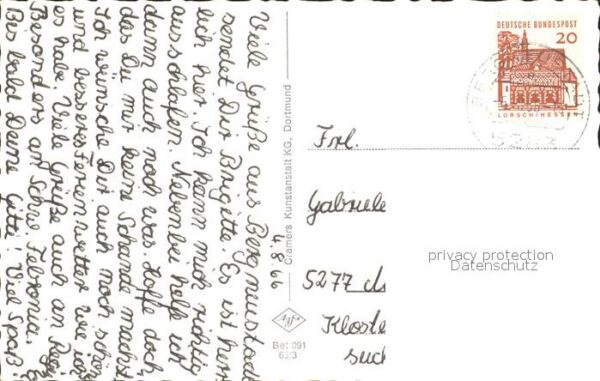 Viele Grüße aus Bergneustadt
sendet Dir Brigitte. Es ist herr
lich hier. Ich kann mich richtig
ausschlafen. Nebenbei helfe ich
dann auch noch was. Hoffe doch,
das Du mir keine Schande machst.
Ich wünsche Dir auch noch schöne
und besseres Ferienwetter wie ich
es habe. Viele Grüße auch an
Besonders an
Bis bald Deine Gitti! Viel Spaß
4.8.66
Cramers Kunstanstalt KG, Dortmund
Agfa
Bet 091
63/3
DEUTSCHE BUNDESPOST
20
LORSCH/HESSEN
Frl.
Gabriele
5277
Kloste
such
privacy protection
Datenschutz